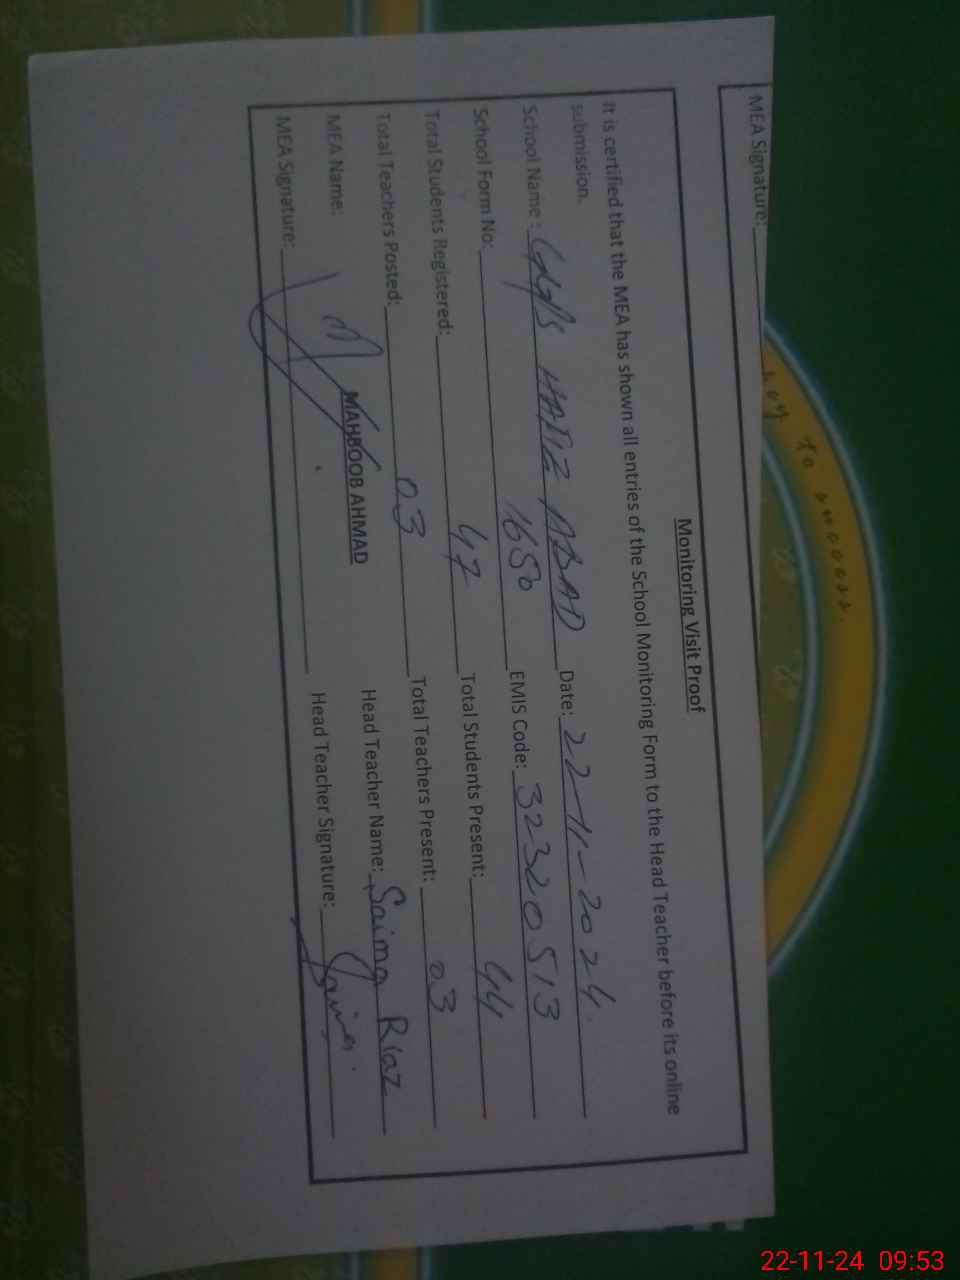 MEA Signature:
Monitoring Visit Proof
It is certified that the MEA has shown all entries of the School Monitoring Form to the Head Teacher before its online
submission.
School Name : HAFIZ ABAD Date: 22-11-2024.
School Form No: 1650 EMIS Code: 32320513
Total Students Registered: 47 Total Students Present: 44
Total Teachers Posted: 03 Total Teachers Present: 03
MEA Name: MAHBOOB AHMAD Head Teacher Name: Saima Riaz
MEA Signature: Head Teacher Signature: Saima
to success.
22-11-24 09:53